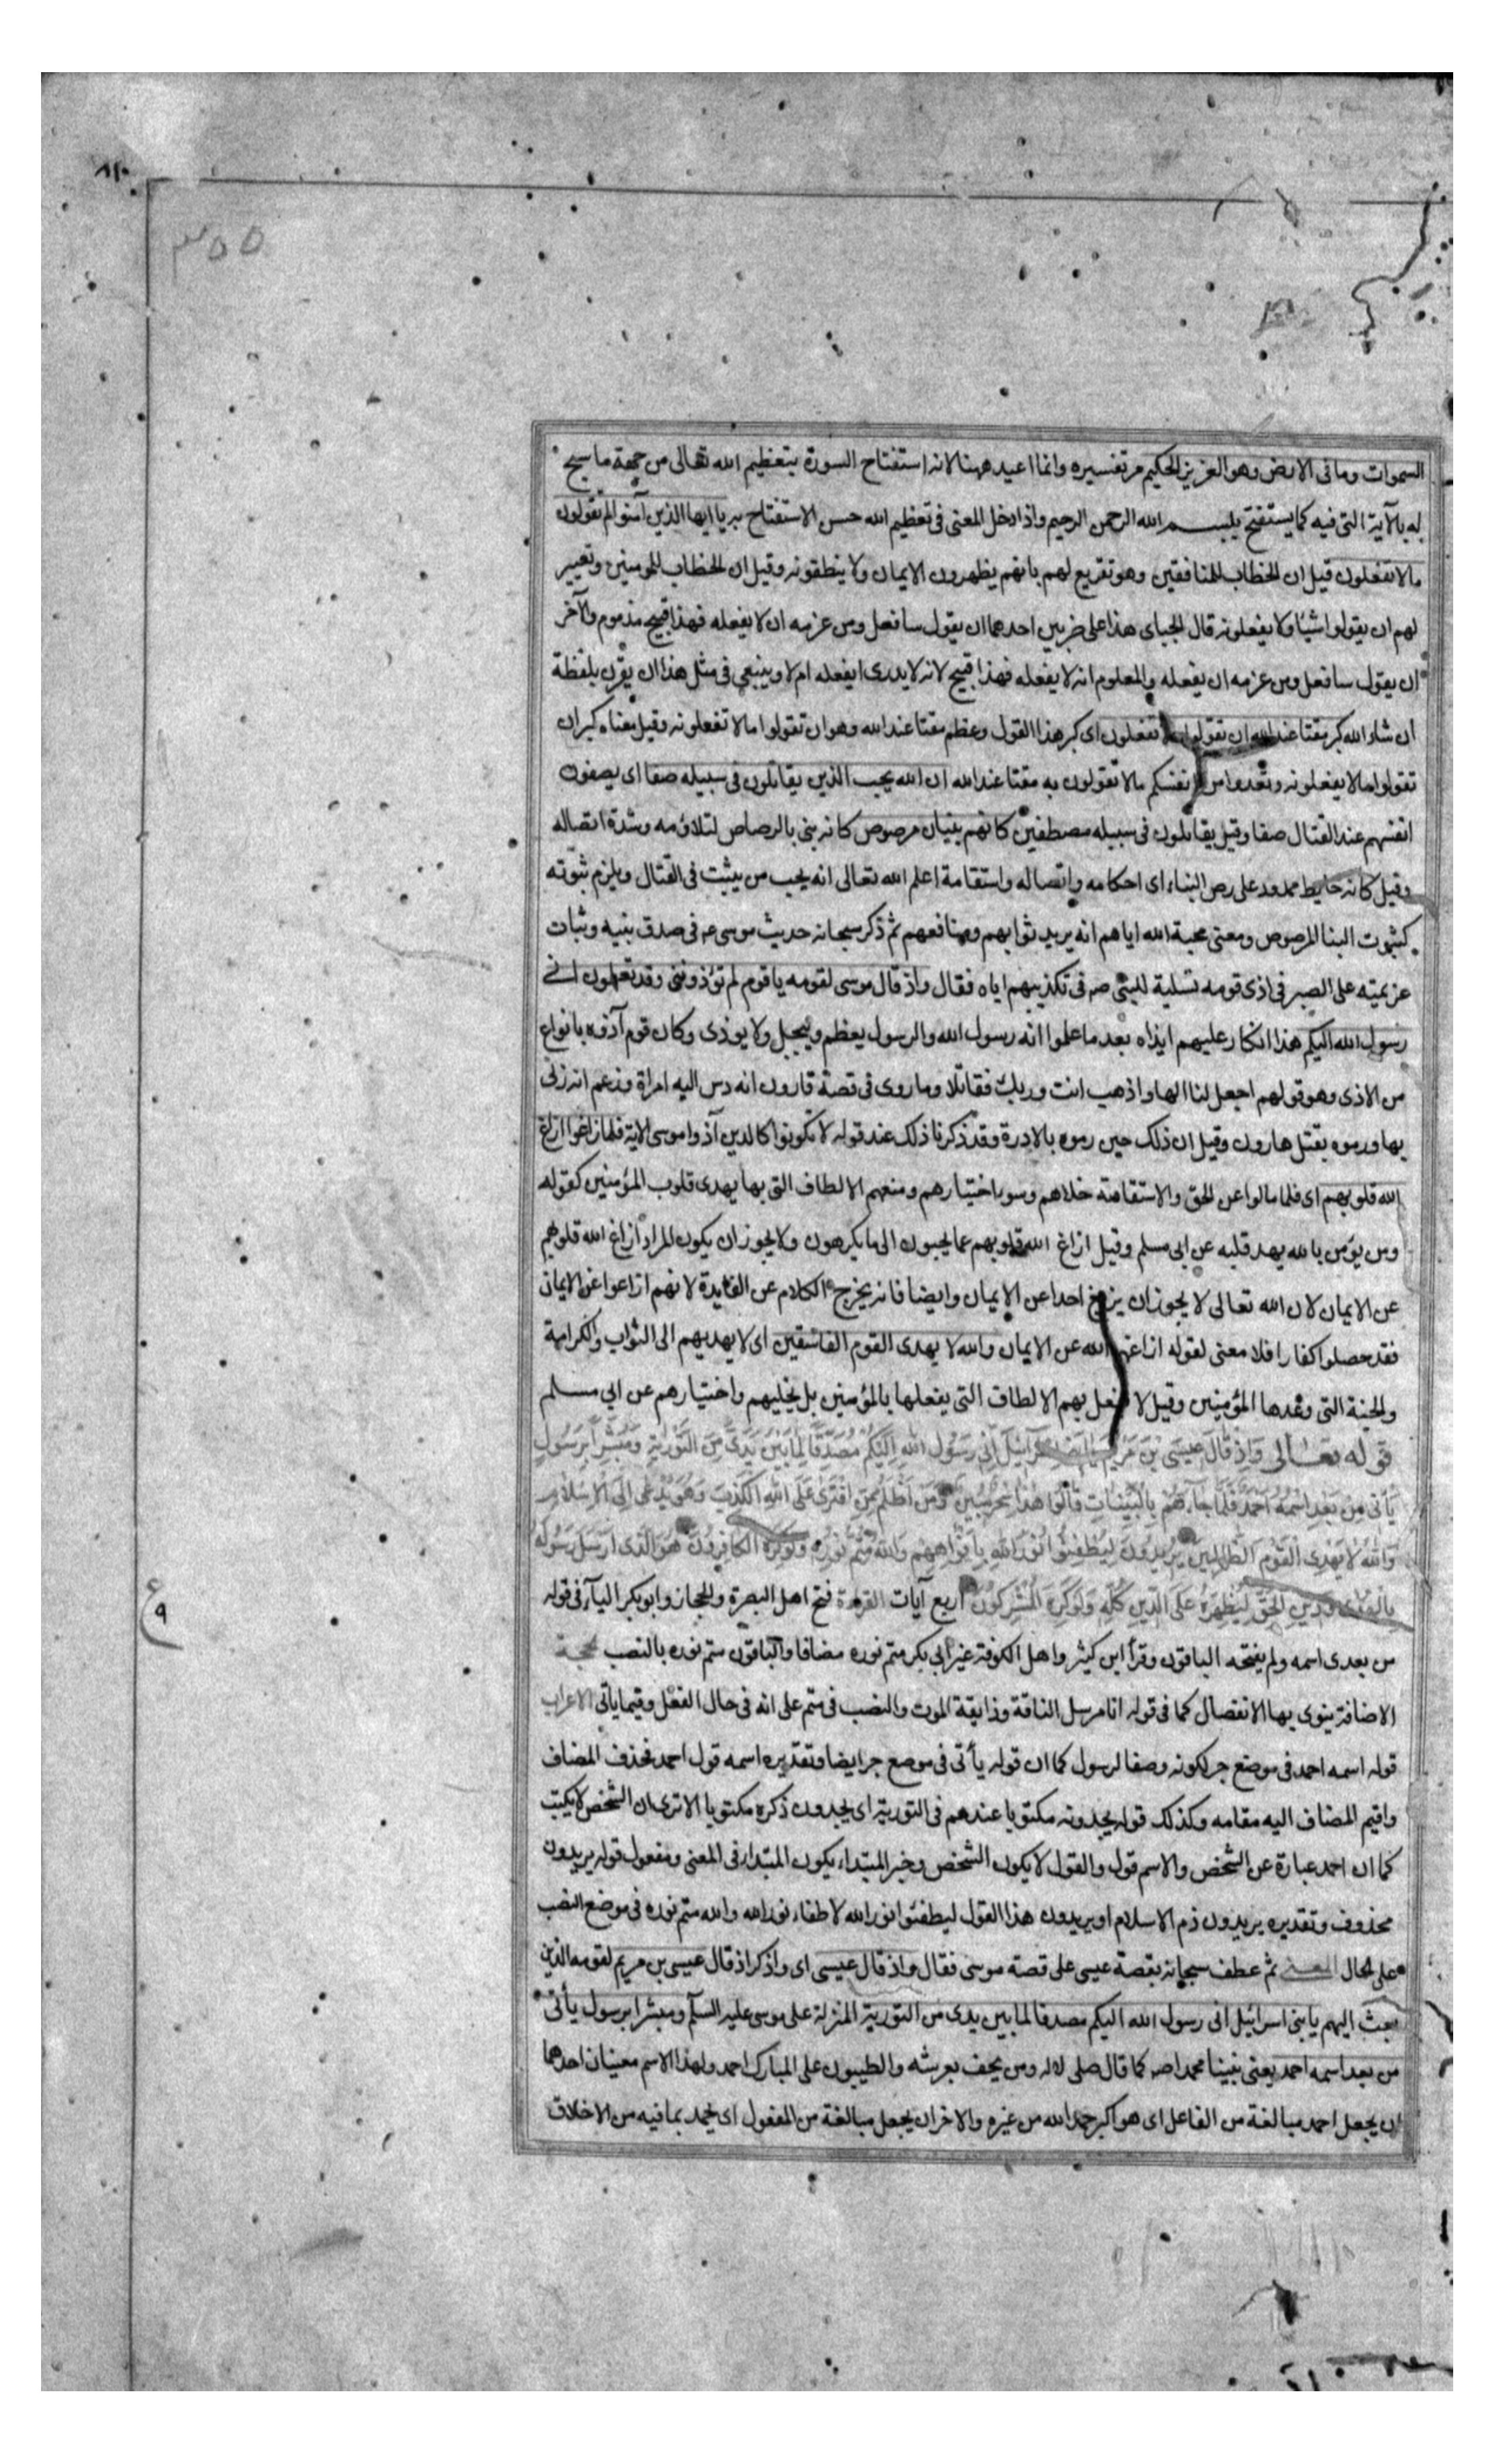 ٨١٠
٣٥٥
السموات وما فى الارض وهو العزيز الحكيم مر تفسيره وانما اعيد ههنا لانه استفتاح السورة بتعظيم الله تعالى من جهة ما سبح
له بالآية التى فيه كما يستفتح ببسم الله الرحمن الرحيم واذا دخل المعنى فى تعظيم الله حسن الاستفتاح به يا ايها الذين آمنوا لم تقولون
مالا تفعلون قيل ان الخطاب للمنافقين وهو تقريع لهم بانهم يظهرون الايمان ولا ينطقونه وقيل ان الخطاب للمومنين وتعيير
لهم ان يقولوا شيئا ولا يفعلونه قال الجباى هذا على ضربين احدهما ان يقول سافعل ومن عزمه ان لا يفعله فهذا قبيح مذموم والآخر
ان يقول سافعل ومن عزمه ان يفعله والمعلوم انه لا يفعله فهذا قبيح لانه لا يدرى ايفعله ام لا وينبغى فى مثل هذا ان يقرن بلفظة
ان شاء الله كبر مقتا عند الله ان تقولوا مالا تفعلون اى كبر هذا القول وعظم مقتا عند الله وهو ان تقولوا مالا تفعلونه وقيل معناه كبر ان
تقولوا مالا يفعلونه وتعدوا من انفسكم مالا تقولون به مقتا عند الله ان الله يحب الذين يقاتلون فى سبيله صفا اى يصفون
انفسهم عند القتال صفا وقيل يقاتلون فى سبيله مصطفين كانهم بنيان مرصوص كانه بنى بالرصاص لتلاؤمه وشدة اتصاله
وقيل كانه حايط ممدود على رص البناء اى احكامه واتصاله واستقامة اعلم الله تعالى انه يحب من يثبت فى القتال ويلزم ثبوته
كثبوت البنا المرصوص ومعنى محبة الله اياهم انه يريد ثوابهم ومنافعهم ثم ذكر سبحانه حديث موسى ع فى صدق بنيه وثبات
عزيمته على الصبر فى اذى قومه تسلية للنبى ص فى تكذيبهم اياه فقال واذ قال موسى لقومه يا قوم لم تؤذوننى وقد تعلمون انى
رسول الله اليكم هذا انكار عليهم ايذاه بعد ما علموا انه رسول الله والرسول يعظم ويبجل ولا يوذى وكان قوم آذوه بانواع
من الاذى وهو قولهم اجعل لنا الها واذهب انت وربك فقاتلا وما روى فى قصة قارون انه دس اليه امراة وزعم انه زنى
بها ورموه بقتل هارون وقيل ان ذلك حين رموه بالادرة وقد ذكرنا ذلك عند قوله لا تكونوا كالذين آذوا موسى الاية فلما زاغوا ازاغ
الله قلوبهم اى فلما مالوا عن الحق والاستقامة خلاهم وسوء اختيارهم ومنعهم الالطاف التى بها يهدى قلوب المؤمنين كقوله
ومن يؤمن بالله يهد قلبه عن ابى مسلم وقيل ازاغ الله قلوبهم عما يحبون الى ما يكرهون ولا يجوز ان يكون المراد ازاغ الله قلوبهم
عن الايمان لان الله تعالى لا يجوز ان يزيغ احدا عن الايمان وايضا فانه يخرج الكلام عن الفايدة لانهم اذا زاغوا عن الايمان
فقد حصلوا كفارا فلا معنى لقوله ازاغهم الله عن الايمان والله لا يهدى القوم الفاسقين اى لا يهديهم الى الثواب والكرامة
والجنة التى وعدها المؤمنين وقيل لا يفعل بهم الالطاف التى يفعلها بالمؤمنين بل يخليهم واختيارهم عن ابي مسلم
قوله تعالى وَاِذ قَالَ عيسَى بْنَ مَريَم يا بنى اسرآئيل اِنّى رَسُولُ اللهِ اِلَيْكُمْ مُصَدِّقًا لِمَا بَيْنَ يَدَىَّ مِنَ التَّوْرٰيةِ وَمُبَشِّرًا بِرَسُولٍ
يَأتى مِنْ بَعدِى اسْمُهُ اَحمَدُ فَلَمّا جآءهُمْ بِالْبَيّنَاتِ قَالُوا هٰذا سِحْرٌ مُبينٌ وَمَن اَظْلَمُ مِمَّنِ افْتَرٰى عَلَى اللهِ الْكَذِبَ وَهُوَ يُدْعى اِلَى الاِسْلَامِ
وَاللهُ لا يَهْدِى الْقَوْمَ الظّالِمينَ يُريدُونَ لِيُطْفِئُوا نُورَ اللهِ بِاَفْوَاهِهِم وَاللهُ مُتِمُّ نُورِهِ وَلَوْ كَرِهَ الْكَافِرُونَ هُوَ الَّذى اَرسَلَ رَسُولَهُ
بِالْهُدى وَدينِ الْحَقِّ لِيُظْهِرَهُ عَلَى الدّينِ كُلِّهِ وَلَوْ كَرِهَ الْمُشرِكُونَ اربع آيات القراءة فتح اهل البصرة والحجاز وابو بكر اليآء فى قوله
ع ٩
من بعدى اسمه ولم يفتحه الباقون وقرأ ابن كثير واهل الكوفة غير ابى بكر متم نوره مضافا والباقون متم نوره بالنصب الحجة
الاضافة ينوى بها الانفصال كما فى قوله انا مرسل الناقة وذايقة الموت والنصب فى متم على انه فى حال الفعل وفيما ياتى الاعراب
قوله اسمه احمد فى موضع جر لكونه وصفا لرسول كما ان قوله يأتى فى موضع جر ايضا وتقديره اسمه قول احمد فحذف المضاف
واقيم المضاف اليه مقامه وكذلك قوله يجدونه مكتوبا عندهم فى التورية اى يجدون ذكره مكتوبا الا ترى ان الشخص لا يكتب
كما ان احمد عبارة عن الشخص والاسم قول والقول لا يكون الشخص وخبر المبتداء يكون المبتداء فى المعنى ومفعول قوله يريدون
محذوف وتقديره يريدون ذم الاسلام او يريدون هذا القول ليطفئوا نور الله لاطفاء نور الله والله متم نوره فى موضع النصب
على الحال المعنى ثم عطف سبحانه بقصة عيسى على قصة موسى فقال واذ قال عيسى اى واذكر اذ قال عيسى بن مريم لقومه الذين
بعث اليهم يا بنى اسرائيل انى رسول الله اليكم مصدقا لما بين يدى من التورية المنزلة على موسى عليه السلم ومبشرا برسول يأتى
من بعد اسمه احمد يعنى نبينا محمدا ص كما قال صلى الاله ومن يحف بعرشه والطيبون على المبارك احمد ولهذا الاسم معنيان احدهما
ان يجعل احمد مبالغة من الفاعل اى هو اكبر حمد الله من غيره والاخر ان يجعل مبالغة من المفعول اى يحمد بما فيه من الاخلاق